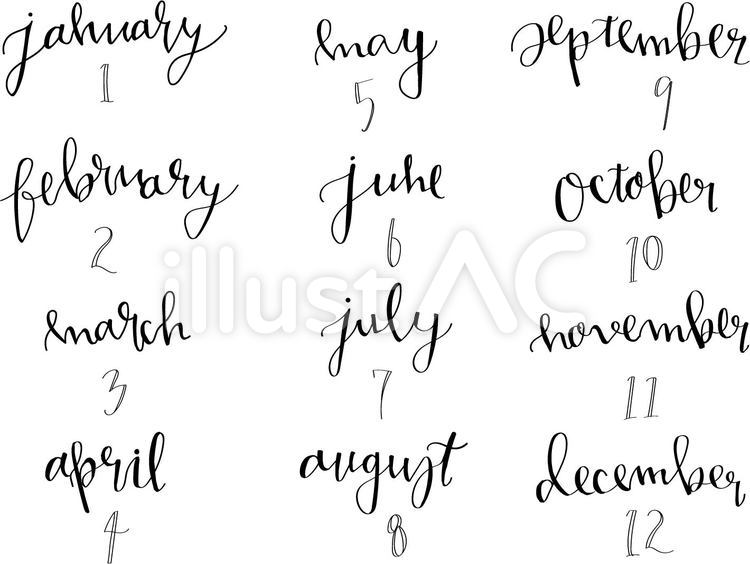 january
1
february
2
march
3
april
4
may
5
june
6
july
7
august
8
september
9
october
10
november
11
december
12
illustAC